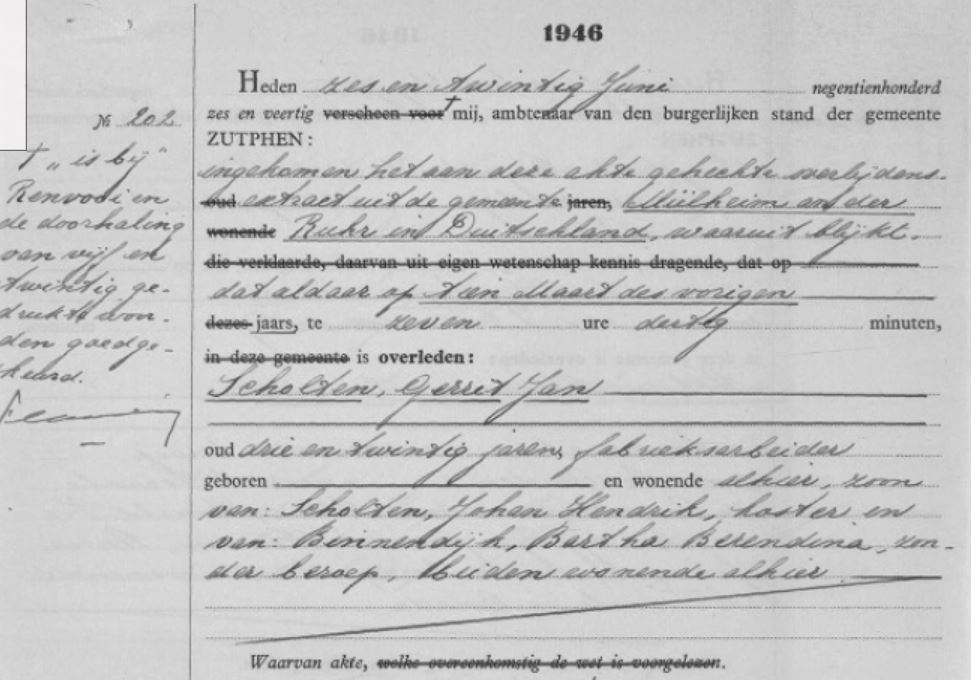 1946
Heden zes en twintig Juni negentienhonderd
zes en veertig verscheen voor † mij, ambtenaar van den burgerlijken stand der gemeente
ZUTPHEN:
№ 202
† „is bij"
Renvooi en
de doorhaling
van vijf en
twintig ge-
drukte woor-
den goedge-
keurd.
ingekomen het aan deze akte gehechte overlijdens-
oud extract uit de gemeente jaren, Mülheim an der
wonende Ruhr in Duitschland, waaruit blijkt
die verklaarde, daarvan uit eigen wetenschap kennis dragende, dat op
dat aldaar op tien Maart des vorigen
dezes jaars, te zeven ure dertig minuten,
in deze gemeente is overleden:
Scholten, Gerrit Jan
oud drie en twintig jaren, fabrieksarbeider
geboren en wonende alhier, zoon
van: Scholten, Johan Hendrik, koster en
van: Binnendijk, Bartha Berendina, zon-
der beroep, beiden wonende alhier
Waarvan akte, welke overeenkomstig de wet is voorgelezen.